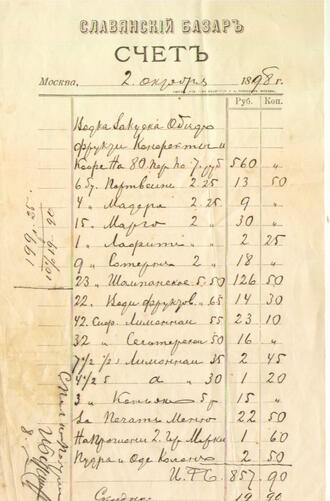 СЛАВЯНСКІЙ БАЗАРЪ
СЧЕТЪ
Москва, 2 октября 1898 г.
Руб. Коп.
Водка Закуска Обидъ
фрукты Конфекты и
Кофе На 80. пер по 7. руб 560 "
6 бу. Портвейн 2 25 13 50
4 " Мадера 2 25 9 "
15. Марго 2 " 30 "
1 " Лафитъ " " 2 25
9 " Сотерн 2 " 18 "
23 " Шампанское 5.50 126 50
22. Води фруктов. " 65 14 30
42. Сиф. Лимоннаи 55 23 10
32 " Селтерской 50 16 "
7 1/2 Лимоннаи 35 2 45
4 1/2 а " 30 1 20
3 " Коньяк 5 р 15 "
За Печать Меню 22 50
На Прошении 2. гер Марки 1 . 60
Пудра и Оде Колонъ 2 50
857 . 90